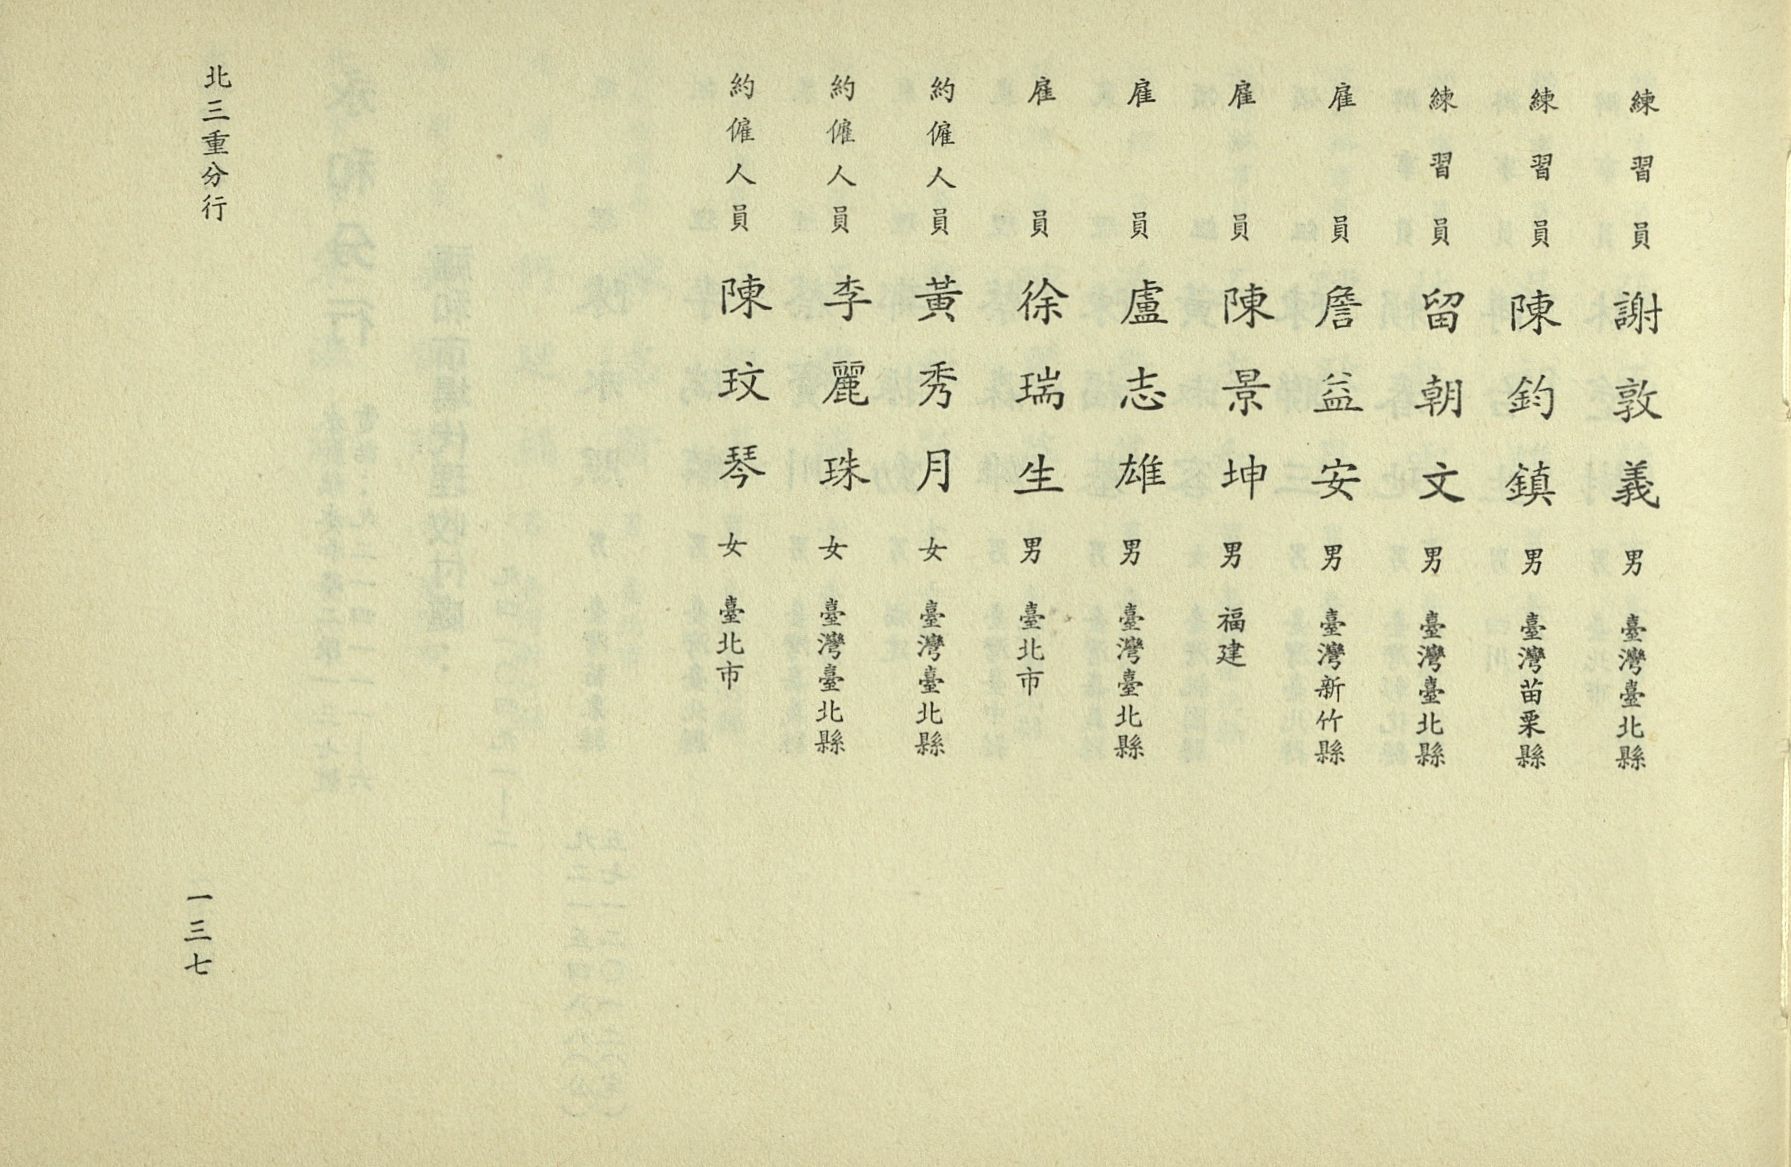 練習員 謝敦義 男 臺灣臺北縣
練習員 陳鈞鎮 男 臺灣苗栗縣
練習員 留朝文 男 臺灣臺北縣
雇員 詹益安 男 臺灣新竹縣
雇員 陳景坤 男 福建
雇員 盧志雄 男 臺灣臺北縣
雇員 徐瑞生 男 臺北市
約僱人員 黃秀月 女 臺灣臺北縣
約僱人員 李麗珠 女 臺灣臺北縣
約僱人員 陳玟琴 女 臺北市
北三重分行
一三七